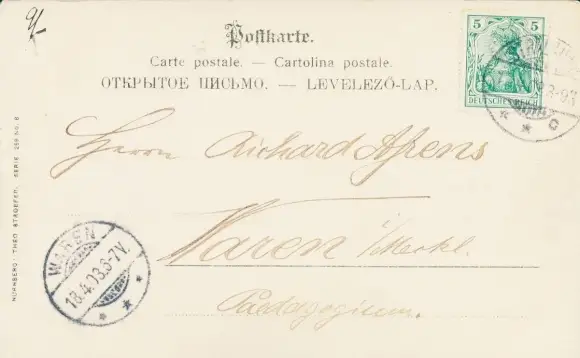 Postkarte.
Carte postale. — Cartolina postale.
ОТКРЫТОЕ ПИСЬМО. — LEVELEZŐ-LAP.
5 5
DEUTSCHES REICH
Herrn Richard Ahrens
Waren i/Meckl.
Pädagogium.
WAREN
13.4.03.6-7V.
NÜRNBERG: THEO STROEFER. SERIE 259 No. 6